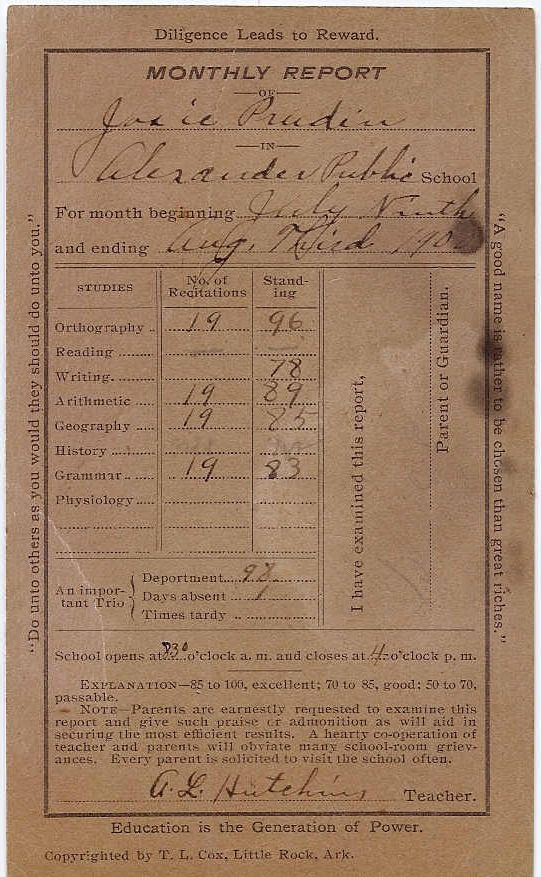 Diligence Leads to Reward.
MONTHLY REPORT
OF
Josie Prudin
IN
Alexander Public School
For month beginning July Ninth
and ending Aug. Third 190
STUDIES No. of Recitations Standing
Orthography 19 96
Reading
Writing 78
Arithmetic 19 89
Geography 19 85
History
Grammar 19 83
Physiology
An important Trio
Deportment 98
Days absent 1
Times tardy
I have examined this report,
Parent or Guardian.
School opens at 830 o'clock a. m. and closes at 4 o'clock p. m.
EXPLANATION—85 to 100, excellent; 70 to 85, good; 50 to 70,
passable.
NOTE—Parents are earnestly requested to examine this
report and give such praise or admonition as will aid in
securing the most efficient results. A hearty co-operation of
teacher and parents will obviate many school-room griev-
ances. Every parent is solicited to visit the school often.
A. L. Hutchins Teacher.
Education is the Generation of Power.
Copyrighted by T. L. Cox, Little Rock, Ark.
"Do unto others as you would they should do unto you."
"A good name is rather to be chosen than great riches."